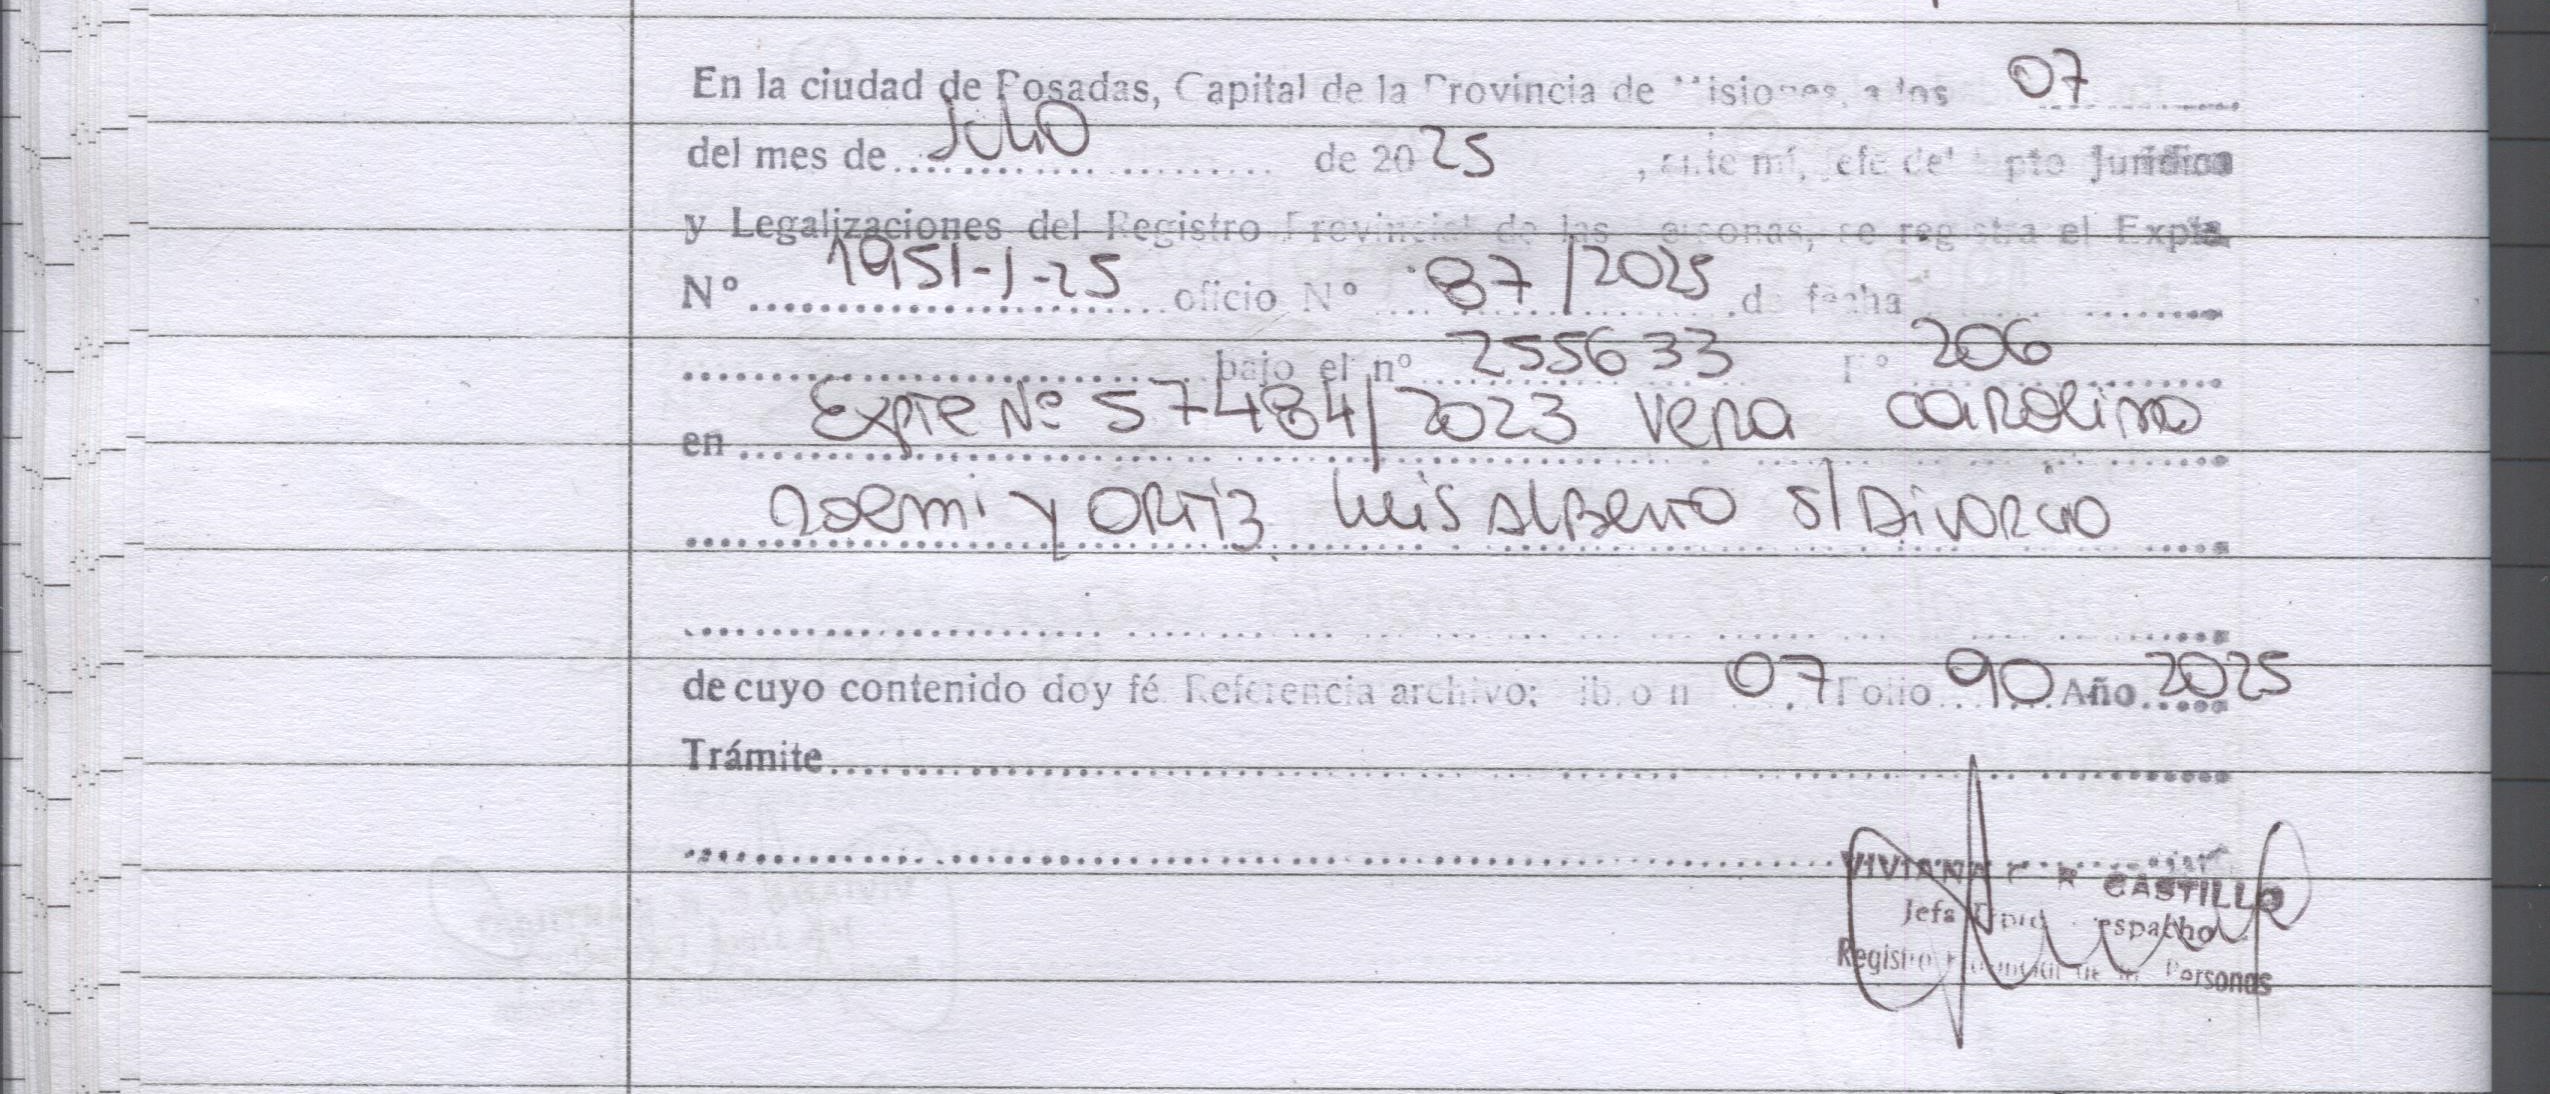 En la ciudad de Posadas, Capital de la Provincia de Misiones, a los 07
del mes de Julio de 2025, ante mí, Jefe del Dpto Jurídico
y Legalizaciones del Registro Provincial de las Personas, se registra el Expte
N° 1951-J-25 oficio N° 87/2025 de fecha
bajo el n° 255633 F° 206
en Expte Nº 57484/2023 Vera Carolina
Noemi y Ortiz Luis Alberto s/ Divorcio
de cuyo contenido doy fé Referencia archivo: libro n 07 Folio 90 Año 2025
Trámite
VIVIANA CASTILLO
Jefa Dpto Despacho
Registro Provincial de las Personas